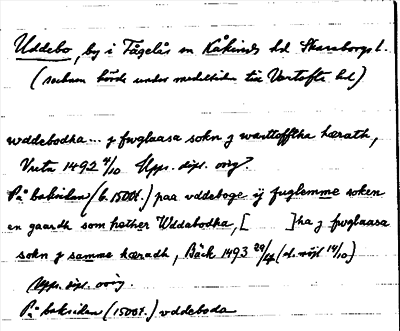 Uddebo, by i Fågelås sn Kåkinds hd Skaraborgs l.
(socknen hörde under medeltiden till Vartofta hd)
wddebodha... j fwglaasa sokn j warttofftha hærath,
Vreta 1492 4/10 Upps. dipl. orig.
På baksidan (b. 1500t.) paa vddeboge ij fuglemme soken
en gaardh som hether Wddebodha, [ ] ha j fwglaasa
sokn j samme hæradh, Bäck 1493 29/4 (d. 14/10)
Upps. dipl. orig.
På baksidan (1500t.) vddeboda